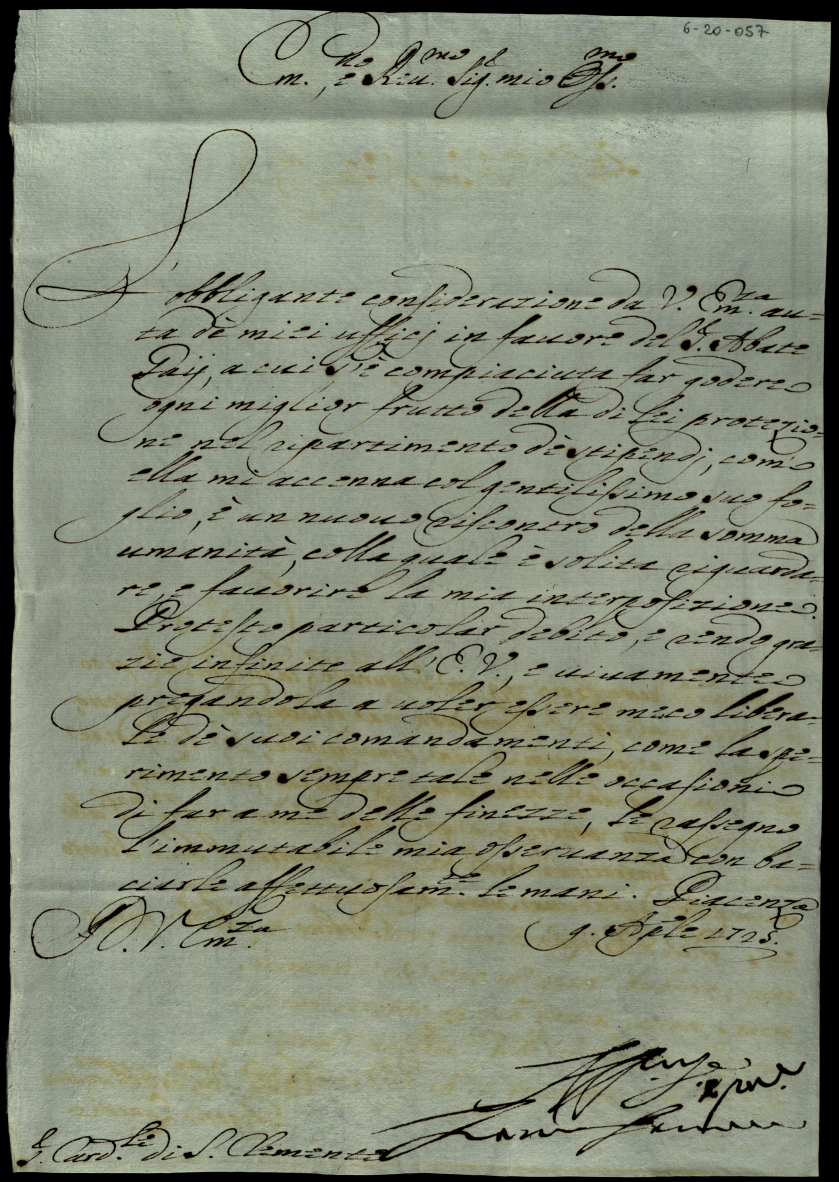 6-20-057
Em.no e Reu.mo Sig.r mio Oss.mo
L'obbligante considerazione da V. Em.za au=
ta dè miei ufficj in fauore del S.r Abate
Paij, a cui s'è compiaciuta far godere
ogni miglior frutto della di Lei protezio=
ne nel ripartimento dè stipendj, com'
ella mi accenna col gentilissimo suo fo=
glio, è un nuouo riscontro della somma
umanità, colla quale è solita riguarda=
re, e fauorire la mia interposizione.
Protesto particolar debito, e rendo gra=
zie infinite all' E. V., e uiuamente
pregandola a uoler essere meco libera=
le dè suoi comandamenti, come la spe=
rimento sempre tale nelle occasioni
di far a me delle finezze, le rassegno
l'immutabile mia osseruanza con ba=
ciarle affettuosam.te le mani. Piacenza
9. Ap.le 1725.
D. V. Em.za
S. Card.le di S. Clemente